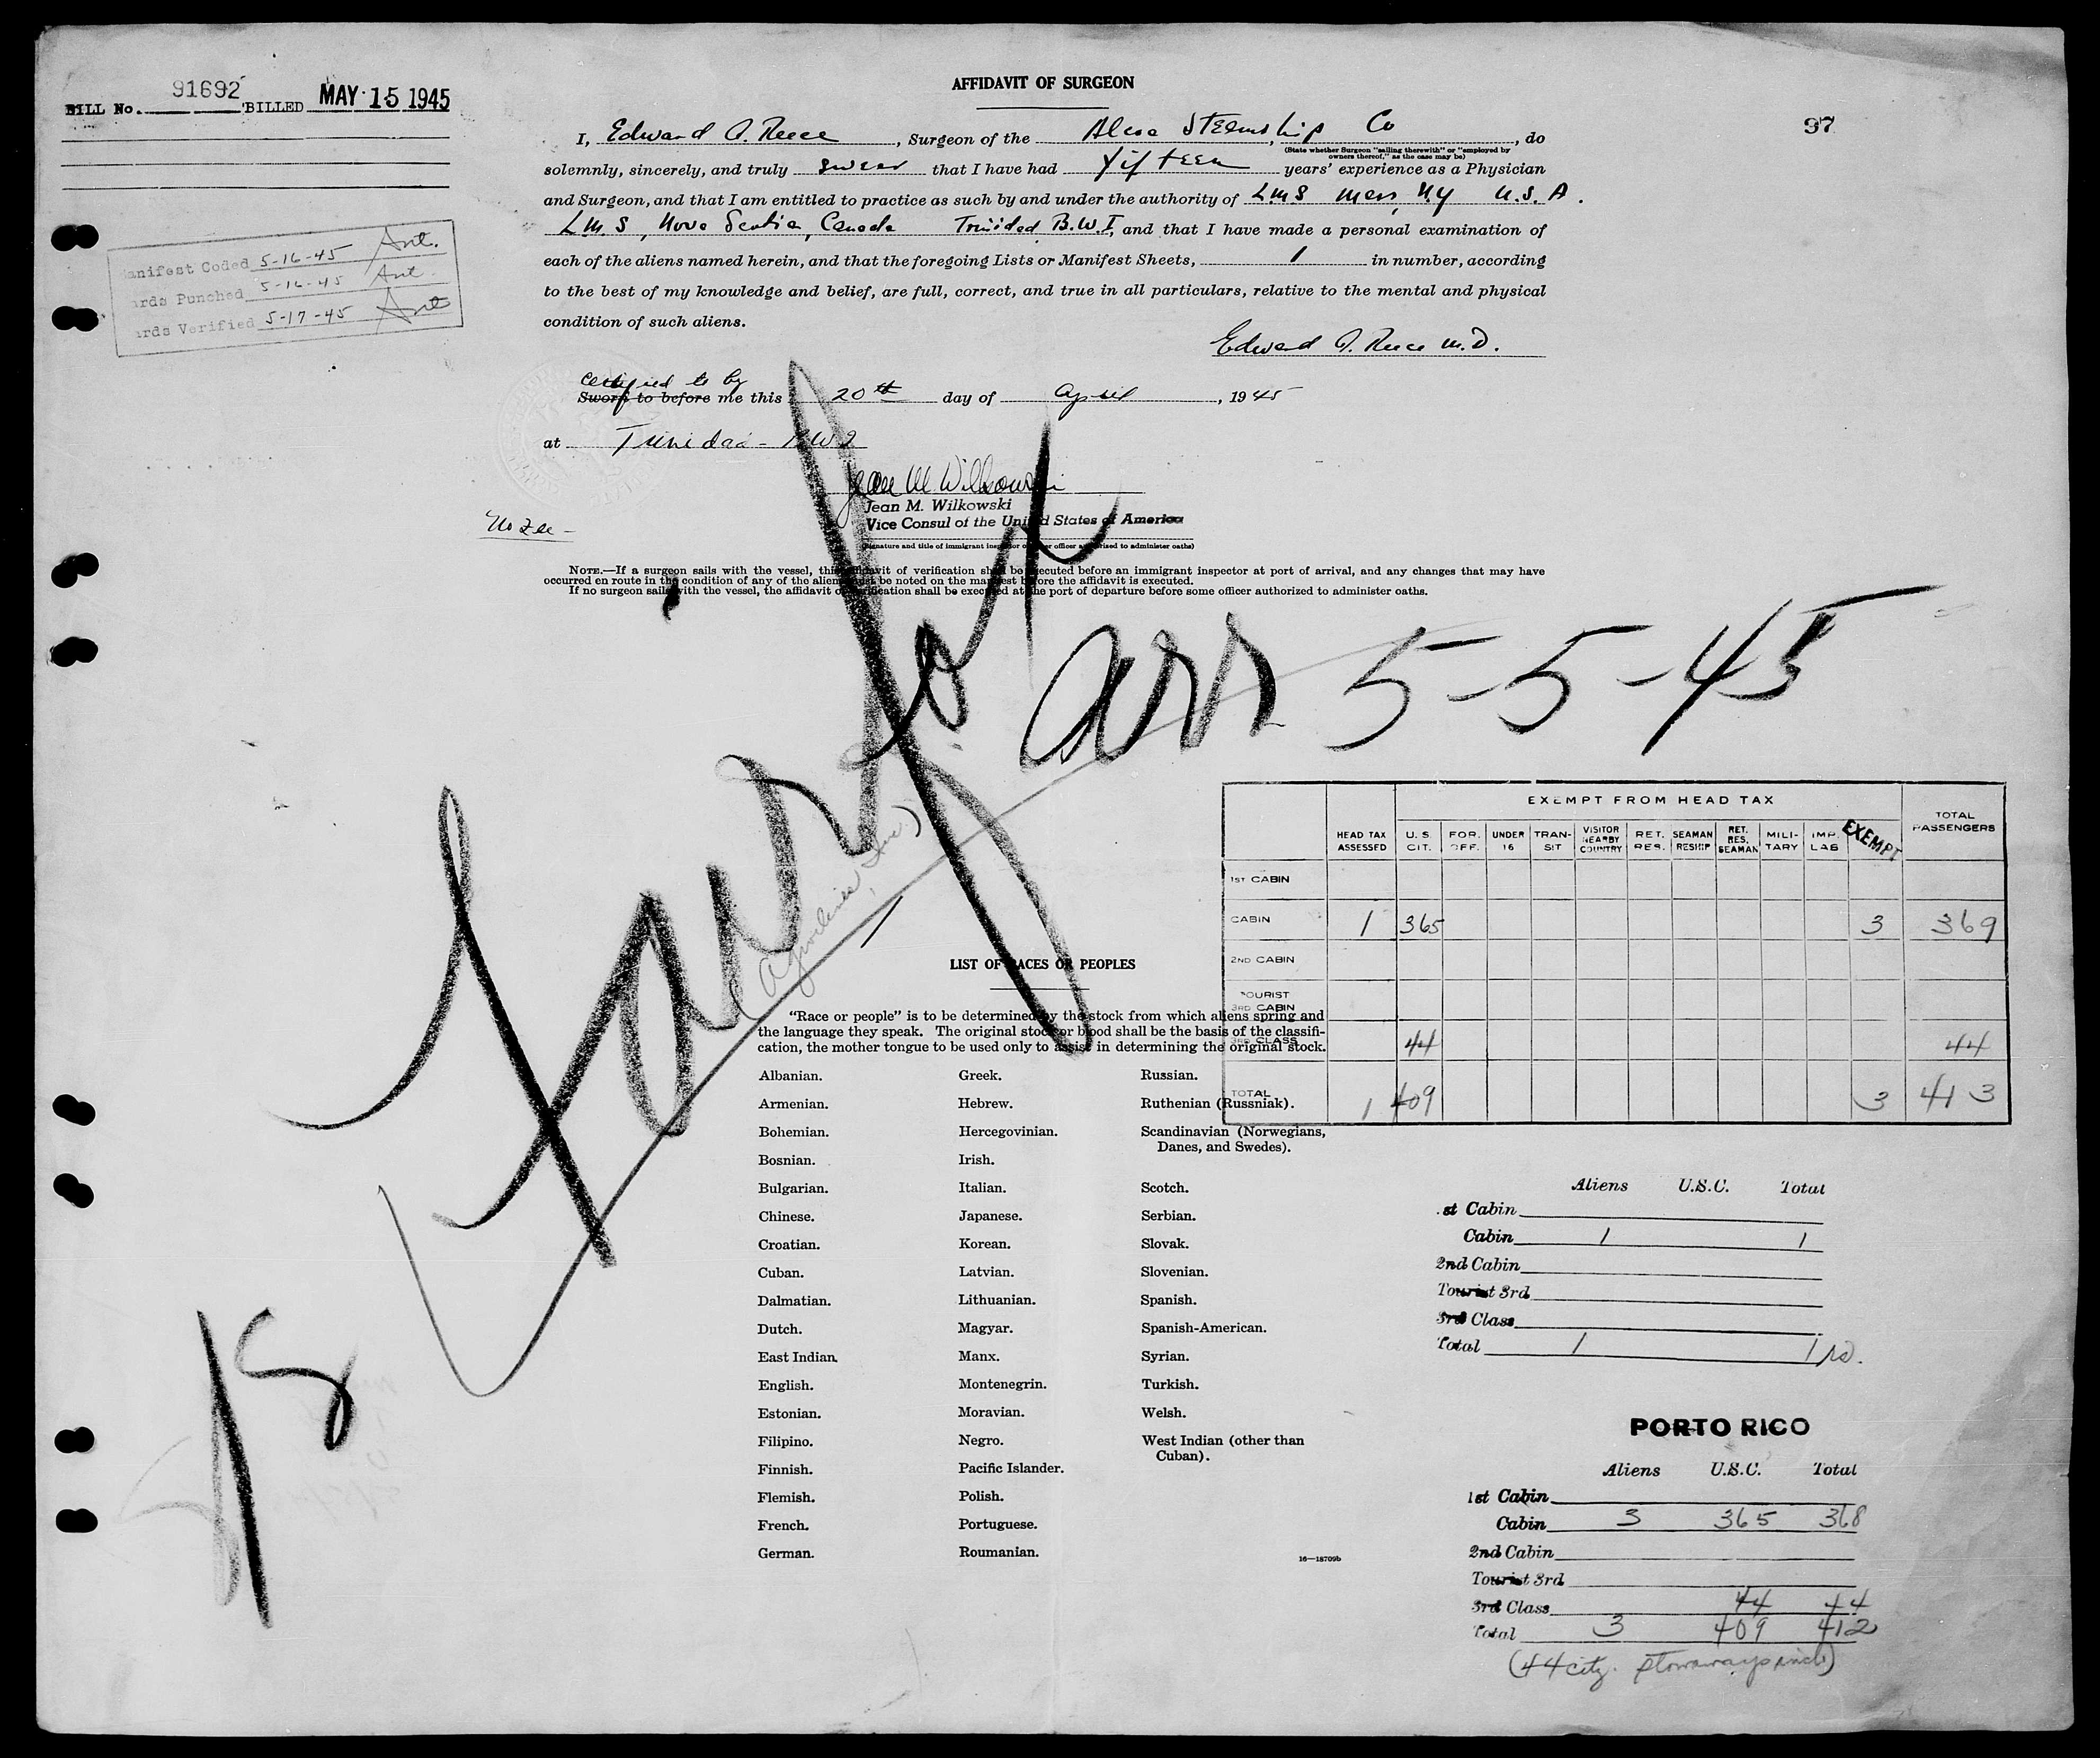 BILL No. 91692 BILLED MAY 15 1945
AFFIDAVIT OF SURGEON
97
I, Edward A. Reece, Surgeon of the Alcoa Steamship Co, do
(State whether Surgeon "sailing therewith" or "employed by owners thereof," as the case may be)
solemnly, sincerely, and truly swear that I have had fifteen years' experience as a Physician
and Surgeon, and that I am entitled to practice as such by and under the authority of LMS Mass, N.Y U.S.A.
L.M.S, Nova Scotia, Canada Trinidad B.W.I, and that I have made a personal examination of
each of the aliens named herein, and that the foregoing Lists or Manifest Sheets, 1 in number, according
to the best of my knowledge and belief, are full, correct, and true in all particulars, relative to the mental and physical
condition of such aliens.
Edward A. Reece M.D.
anifest Coded 5-16-45 Ant.
ards Punched 5-16-45 Ant
ards Verified 5-17-45 Ant
certified to by
Sworn to before me this 20th day of April, 1945
at Trinidad - BWI
Jean M. Wilkowski
Jean M. Wilkowski
Vice Consul of the United States of America
(Signature and title of immigrant inspector or other officer authorised to administer oaths)
No Fee -
NOTE.—If a surgeon sails with the vessel, this affidavit of verification shall be executed before an immigrant inspector at port of arrival, and any changes that may have
occurred en route in the condition of any of the aliens must be noted on the manifest before the affidavit is executed.
If no surgeon sails with the vessel, the affidavit of verification shall be executed at the port of departure before some officer authorized to administer oaths.
arr 5-5-45
EXEMPT FROM HEAD TAX
HEAD TAX ASSESSED U.S. CIT. FOR. OFF. UNDER 16 TRAN-SIT VISITOR NEARBY COUNTRY RET. RES. SEAMAN RESHIP RET. RES. SEAMAN MILI-TARY IMP. LAB EXEMPT TOTAL PASSENGERS
1ST CABIN
CABIN 1 365 3 369
2ND CABIN
TOURIST 3RD CABIN
3RD CLASS 44 44
TOTAL 1 409 3 413
LIST OF RACES OR PEOPLES
"Race or people" is to be determined by the stock from which aliens spring and
the language they speak. The original stock or blood shall be the basis of the classifi-
cation, the mother tongue to be used only to assist in determining the original stock.
Albanian. Greek. Russian.
Armenian. Hebrew. Ruthenian (Russniak).
Bohemian. Hercegovinian. Scandinavian (Norwegians,
Danes, and Swedes).
Bosnian. Irish.
Bulgarian. Italian. Scotch.
Chinese. Japanese. Serbian.
Croatian. Korean. Slovak.
Cuban. Latvian. Slovenian.
Dalmatian. Lithuanian. Spanish.
Dutch. Magyar. Spanish-American.
East Indian. Manx. Syrian.
English. Montenegrin. Turkish.
Estonian. Moravian. Welsh.
Filipino. Negro. West Indian (other than
Cuban).
Finnish. Pacific Islander.
Flemish. Polish.
French. Portuguese.
German. Roumanian.
16—18709b
Aliens U.S.C. Total
st Cabin
Cabin 1 1
2nd Cabin
Tourist 3rd
3rd Class
Total 1 1
PORTO RICO
Aliens U.S.C. Total
1st Cabin
Cabin 3 365 368
2nd Cabin
Tourist 3rd
3rd Class 44 44
Total 3 409 412
(44 citz. stowaways incl)